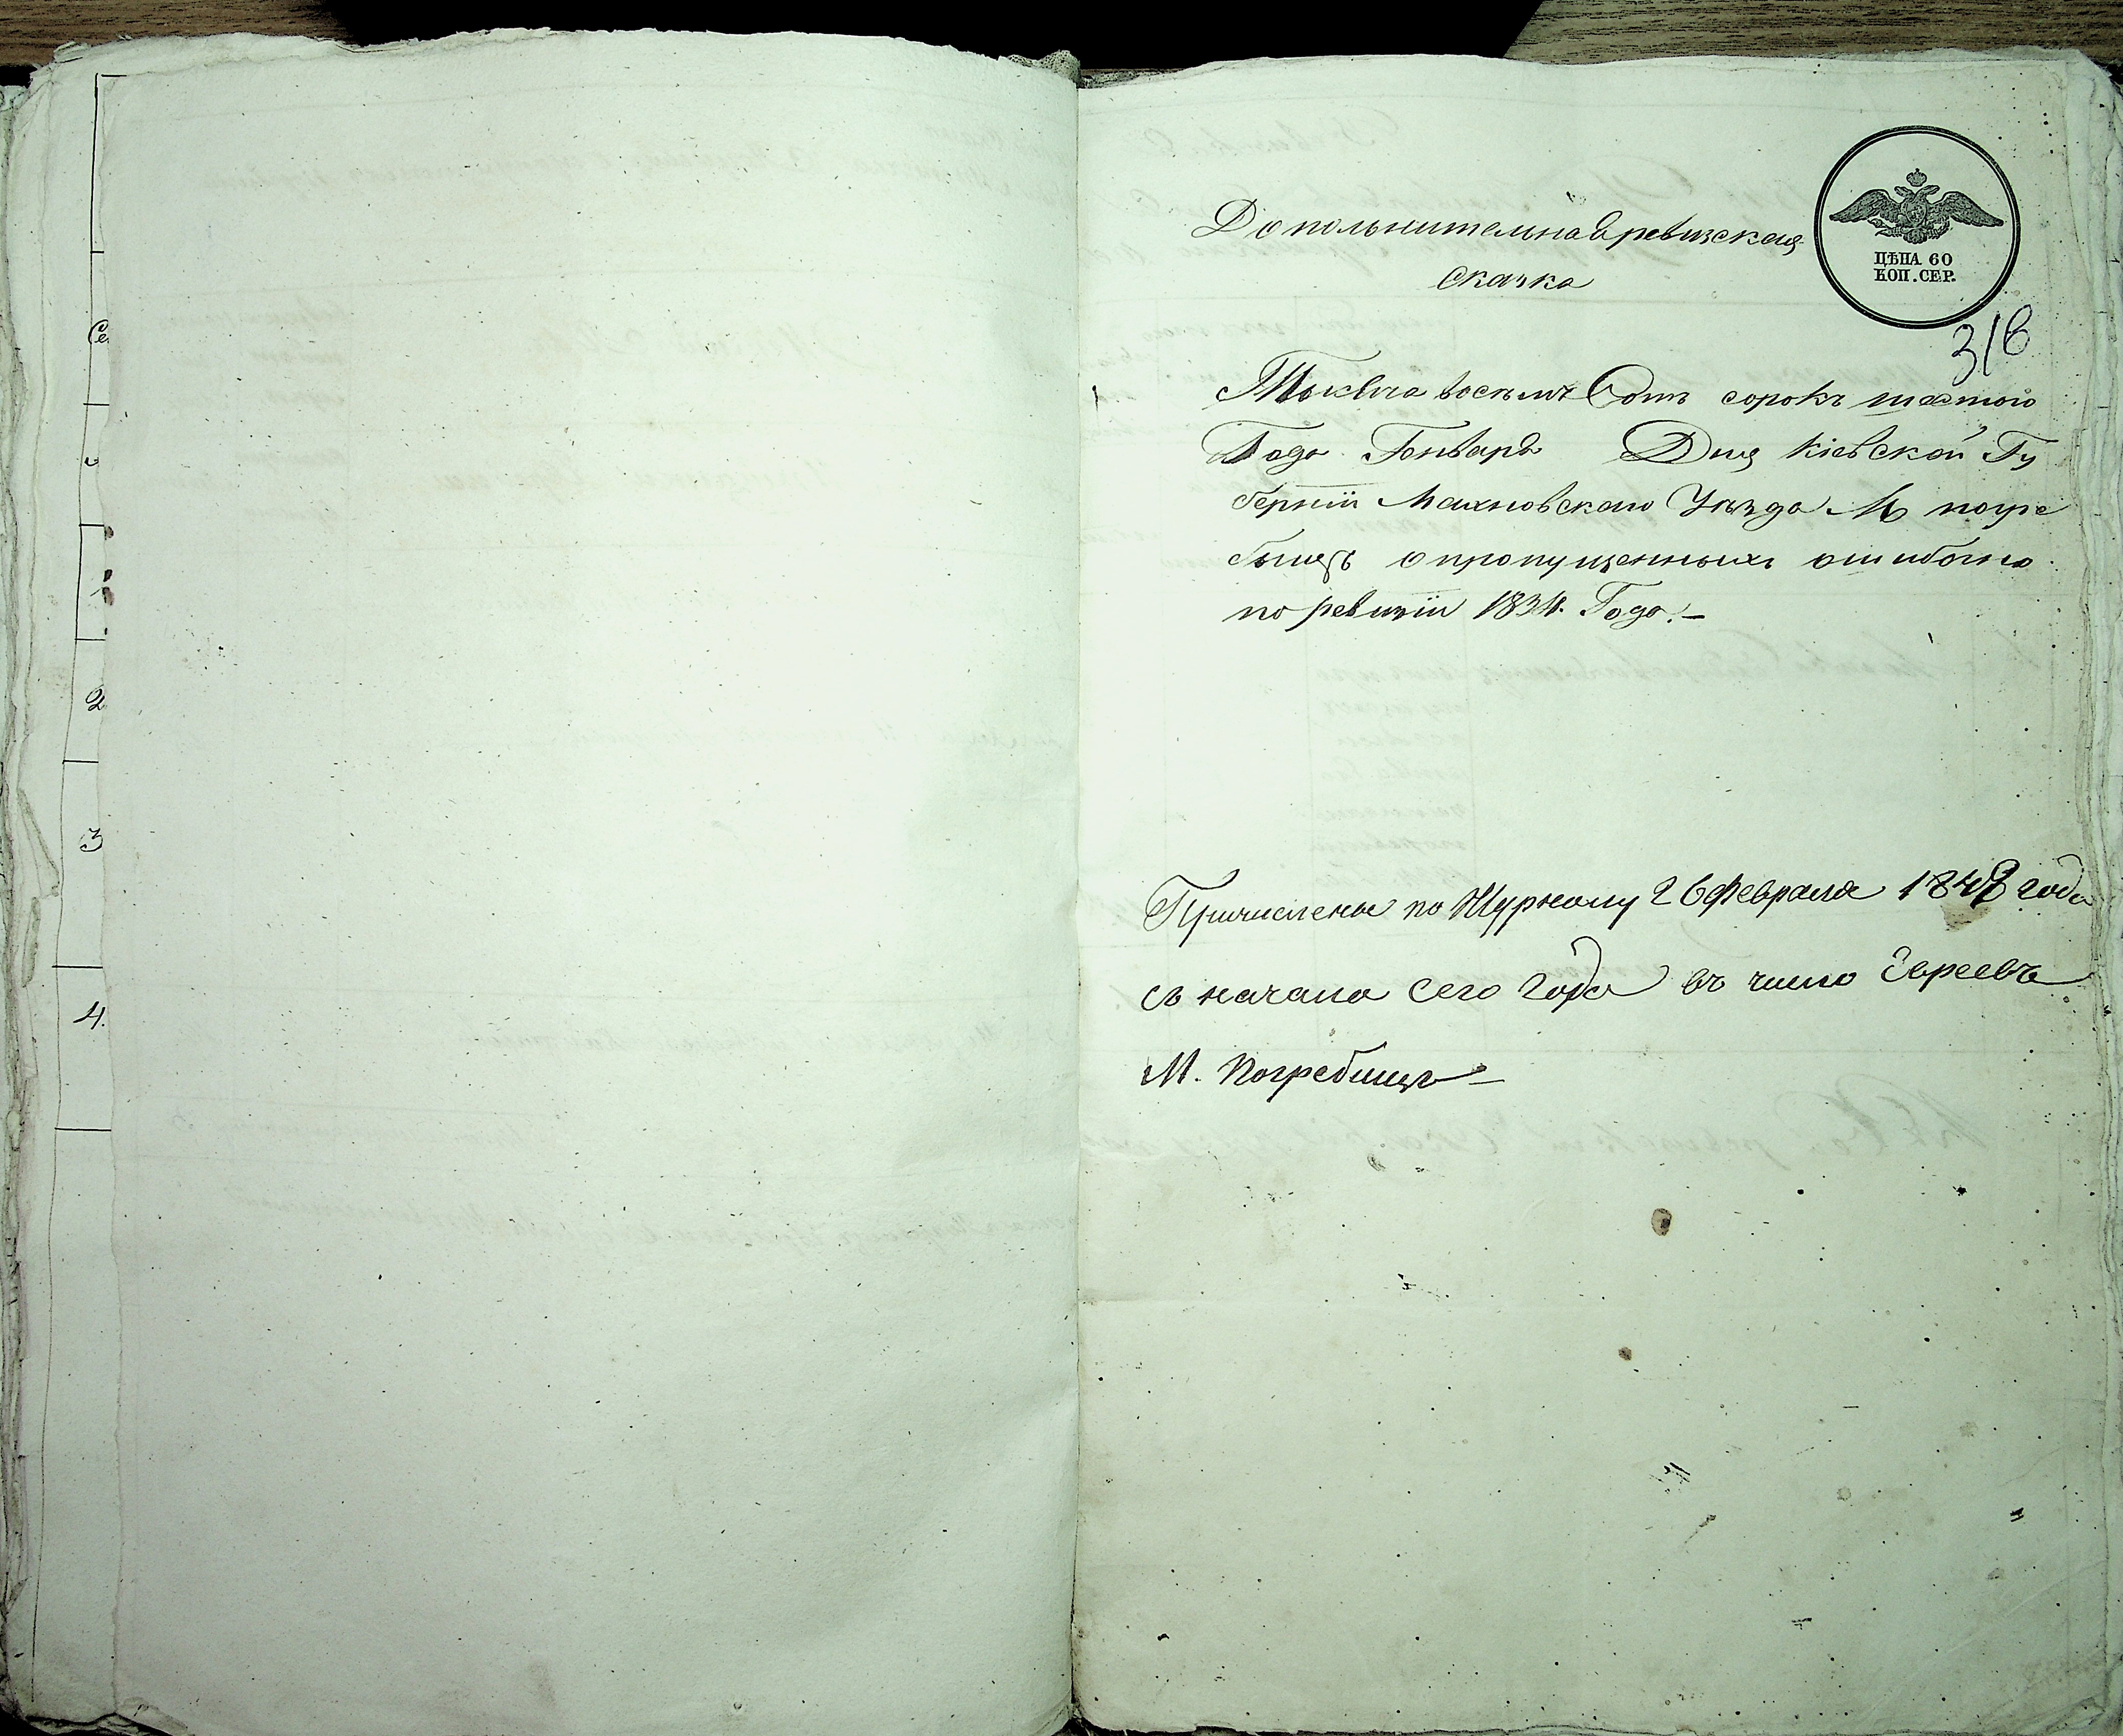 Се
2
3
4.
Дополнительная ревизская
сказка
ЦѢНА 60
КОП. СЕР.
316
Тысяча восемь Сотъ сорокъ шестого
Года Генваря Дня Кіевской Гу
берніи Махновскаго Уѣзда М погре
бищъ о пропущенныхъ ошибочно
по ревизіи 1834. Года.—
Причислены по Журналу 26 Февраля 1848 года
съ начала сего года въ число Евреевъ
М. Погребищъ—